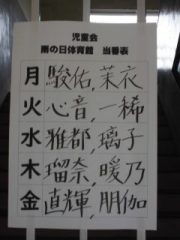 児童会
雨の日体育館　当番表
月 駿佑, 茉衣
火 心音, 一稀
水 雅都, 璃子
木 瑠奈, 暖乃
金 直輝, 朋伽